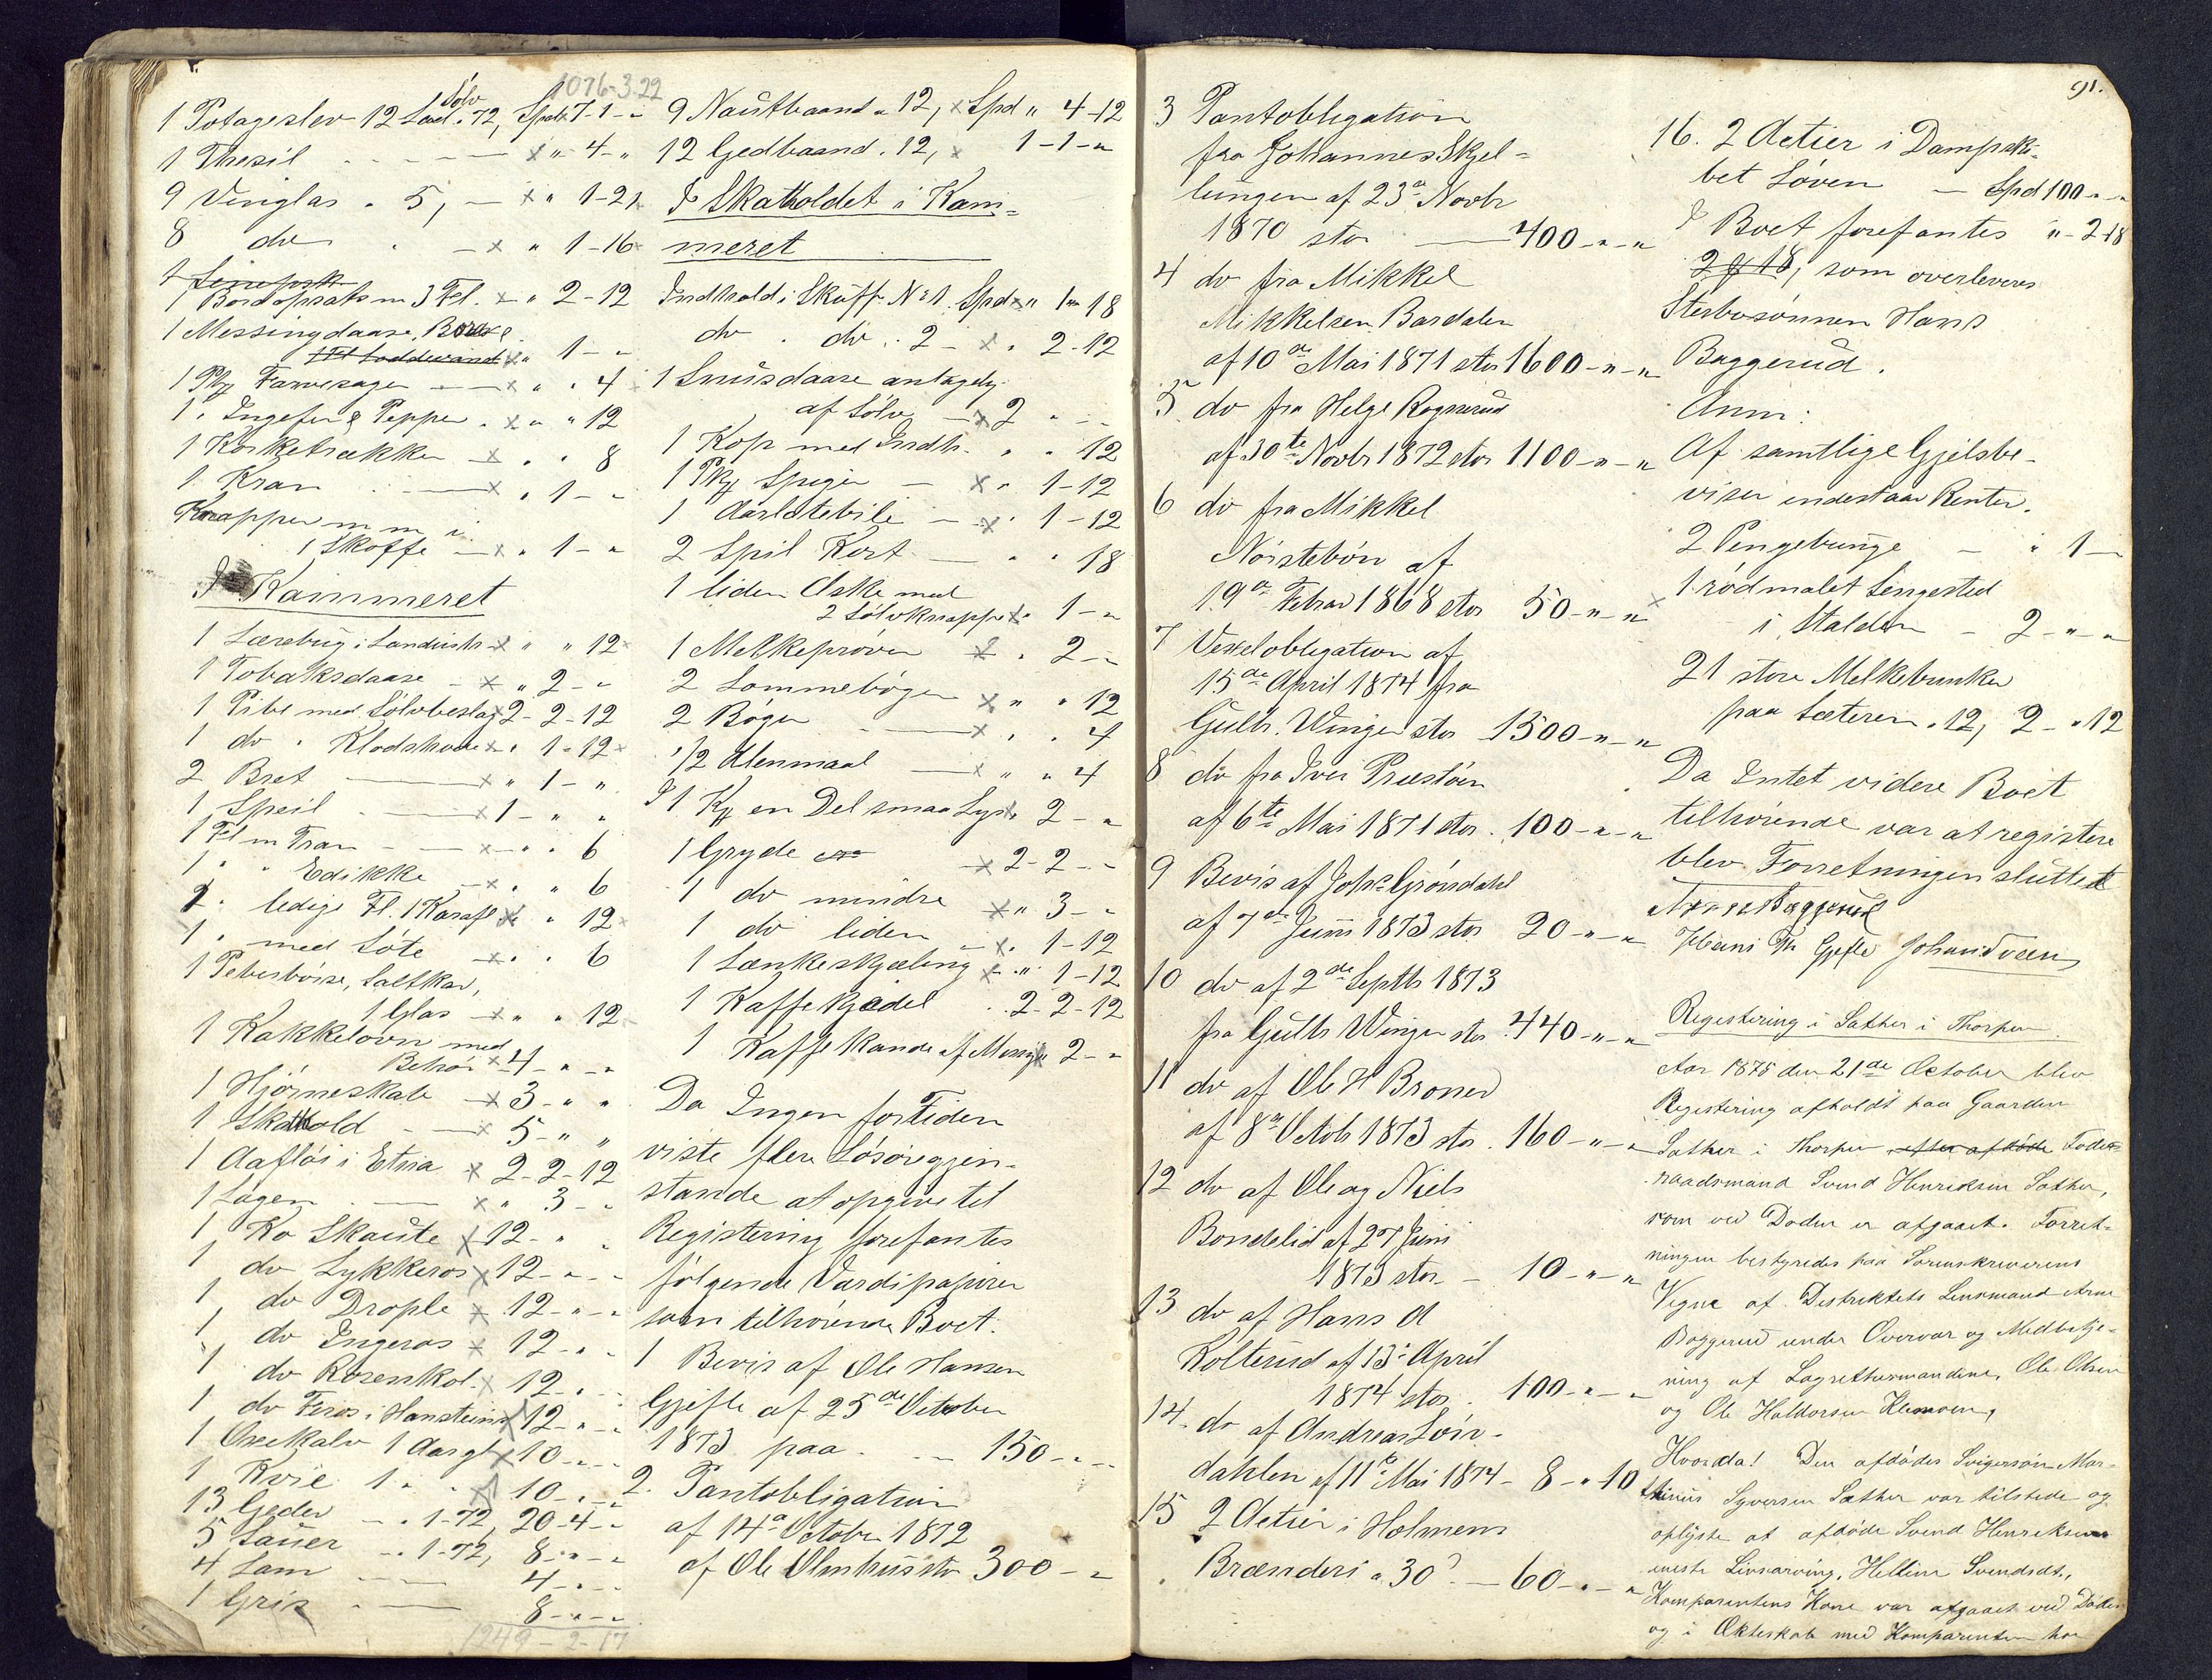 1076-3.22
1 Potageslev 12 Lod Sölv 72, Spd 7-1-"
1 Thesil x " 4-"
9 Vinglas " 5, - x " 1-21
8 do " - x " 1-16
1 Bordopsats m 3 Fl. x " 2-12
1 Messingdaase, Boraxe
x " 1-"
1 Pk Farvesager x " " 4
1 " Ingefer & Pepper " x " " 12
1 Korketrækker x " " 8
1 Kran x " 1-"
Knapper m m i
1 Skoffe x " 1-"
I Kammeret
1 Lærebug i Landhush x " " 12
1 Tobaksdaase - x " 2-"
1 Pibe med Sölvbeslag x 2-2-12
1 do " Klodshove x " 1-12
2 Bret x " 1-"
1 Speil x 1-" "
1 Fl m Tran x " " 6
1 " " Edikke x " " 6
2 " ledige Fl. 1 Karafl x " 12
1 " med Söte x " " 6
1 Peberböise, Saltkar,
1 Glas x " " 12
1 Kakkelovn med
Behör x 4-"-"
1 Hjörneskab x 3-" "
1 Skathold x 5-" "
1 Aaflöi i Etna x 2-2-12
1 Lagen x " 3-"
1 Ko Skaute x 12-" "
1 do Lykkeros x 12-"-"
1 do Drople x 12-"-"
1 do Ingeros x 12-"-"
1 do Rosenkol x 12-"-"
1 do Feros i Hansteins x 12-"-"
1 Oxekalv 1 Aar gl x 10-"-"
1 Kvie 1 " " x 10-"-"
13 Geder " 1-72, 20-4-"
5 Sauer " 1-72, 8-"-"
4 Lam 4-"-"
1 Gris 8-"-"
1249-2-17
9 Nautbaand a 12, x Spd " 4-12
12 Gedbaand " 12, x 1-1-"
I Skatholdet i Kam=
meret
Indhold i Skuff No 1 Spd x " 1-18
do " do " 2 - x " 2-12
1 Snusdaase antagelig
af Sölv - x 2 " -
1 Kop med Indh. " " 12
1 Pk Spiger - x " 1-12
1 Aarlatebile - x " 1-12
2 Spil Kort - " " 18
1 liden Æske med
2 Sölvknapper x " 1-"
1 Melkepröver x " 2-"
2 Lommebøger x " " 12
2 Böger x " " 4
1/2 Alenmaal x " " 4
1 K en Del smaa Lys x 2-"
1 Gryde x 2-2-"
1 do mindre x " 3-"
1 do liden x " 1-12
1 Lænkeskjæling x " 1-12
1 Kaffekjedel " 2-2-12
1 Kaffekande af Messing x 2-"
Da Ingen for Tiden
viste flere Lösöregjen-
stande at opgive til
Registering forefantes
fölgende Værdipapirer
som tilhörende Boet.
1 Bevis af Ole Hansen
Gjefle af 25de October
1873 paa - 150-"-"
2. Pantobligation
af 14de October 1872
af Ole Olmhus stor 300-"
91.
3 Pantobligation
fra Johannes Skjel=
lungen af 23de Novbr
1870 stor 400-"-"
4 do fra Mikkel
Mikkelsen Bardalen
af 10de Mai 1871 stor 1600-"-"
5 do fra Helge Rognerud
af 30te Novbr 1872 stor 1100-"-"
6 do fra Mikkel
Nöistebön af
19de Febrar 1868 stor 50-"-"
7 Vexelobligation af
15de April 1874 fra
Gulb. Winger stor 1500-"-"
8 do fra Iver Præstöen
af 6te Mai 1871 stor 100-"-"
9 Bevis af Johs Grönsdahl
af 7de Juni 1873 stor 20-"-"
10 do af 2de Septbr 1873
fra Gulb Winger stor 440-"-"
11 do af Ole H Broner
af 8de Octob 1873 stor 160-"-"
12 do af Ole og Niels
Bondelid af 27 Juni
1873 stor - 10-"-"
13 do af Hans A
Kolterud af 13de April
1874 stor 100-"-"
14. do af Andreas Löiv-
dahlen af 11te Mai 1874 - 8-"10
15 2 Actier i Holmens
Brænderi a 30 - 60-"-"
16. 2 Actier i Dampski-
bet Löven - Spd 100-"-"
I Boet forefantes " - 2-18
2 # 18, som overleveres
Sterbosönnen Hans
Baggerud.
Anm:
Af samtlige Gjelsbe-
viser indestaar Renter.
2 Pengepunge - " 1-"
x 1 rödmalet Sengested
i Stalden - 2-"-"
21 store Melkebunker
paa Sæteren " 12, 2-"12
Da Intet videre Boet
tilhørende var at registere
blev Forretningen sluttet
Arne Baggerud
Gjefle Johan Tveen
Registering i Sæther i Thorpen
Aar 1875 den 21de October blev
Registering afholdt paa Gaarden
Sæther i Thorpen efter afdöde Föde-
raadsmand Svend Henriksen Sæther,
som ved Döden er afgaaet. Forret-
ningen bestyredes paa Sorenskriverens
Vegne af Distriktets Lensmand Arne
Baggerud under Overvær og Medbetje-
ning af Lagrettesmændene, Ole Olsen
og Ole Haldorsen Klemoen,
Hvorda! Den afdödes Svigersön Mar-
thinius Syversen Sæther var tilstede og
oplyste at afdöde Svend Henriksens
eneste Livsarving, Helline Svendsdt.,
Komparentens Kone var afgaaet ved Döden
og i Ækteskab med Komparenten har